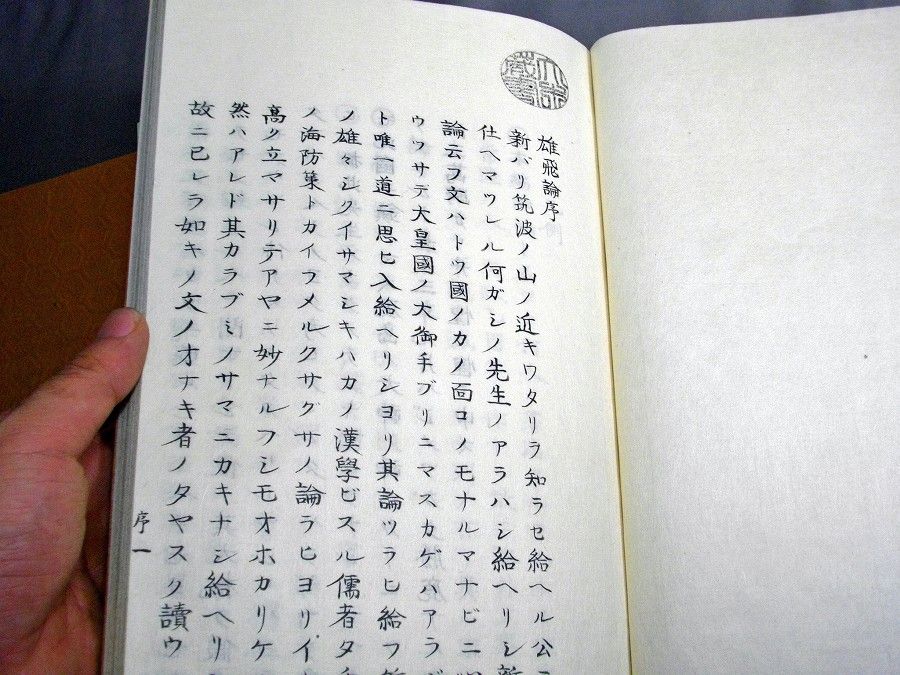 雄飛論序
新バリ筑波ノ山ノ近キワタリヲ知ラセ給ヘル公ニ
仕ヘマツレル何ガシノ先生ノアラハシ給ヘリシ新
論云フ文ハトツ國ノカノ面コノモナルマナビニ
ウツサデ大皇國ノ大御手ブリニマスカゲハアラ
ト唯一道ニ思ヒ入給ヘリショリ其論ツラヒ給フ
ノ雄々シクイサマシキハカノ漢學ビスル儒者タ
ノ海防策トカイフメルクサグサノ論ラヒヨリイ
高ク立マサリテアヤニ妙ナルフシモオホカリケ
然ハアレド其カラブミノサマニカキナシ給ヘリ
故ニ己レラ如キノ文ノオナキ者ノタヤスク讀ウ
序一